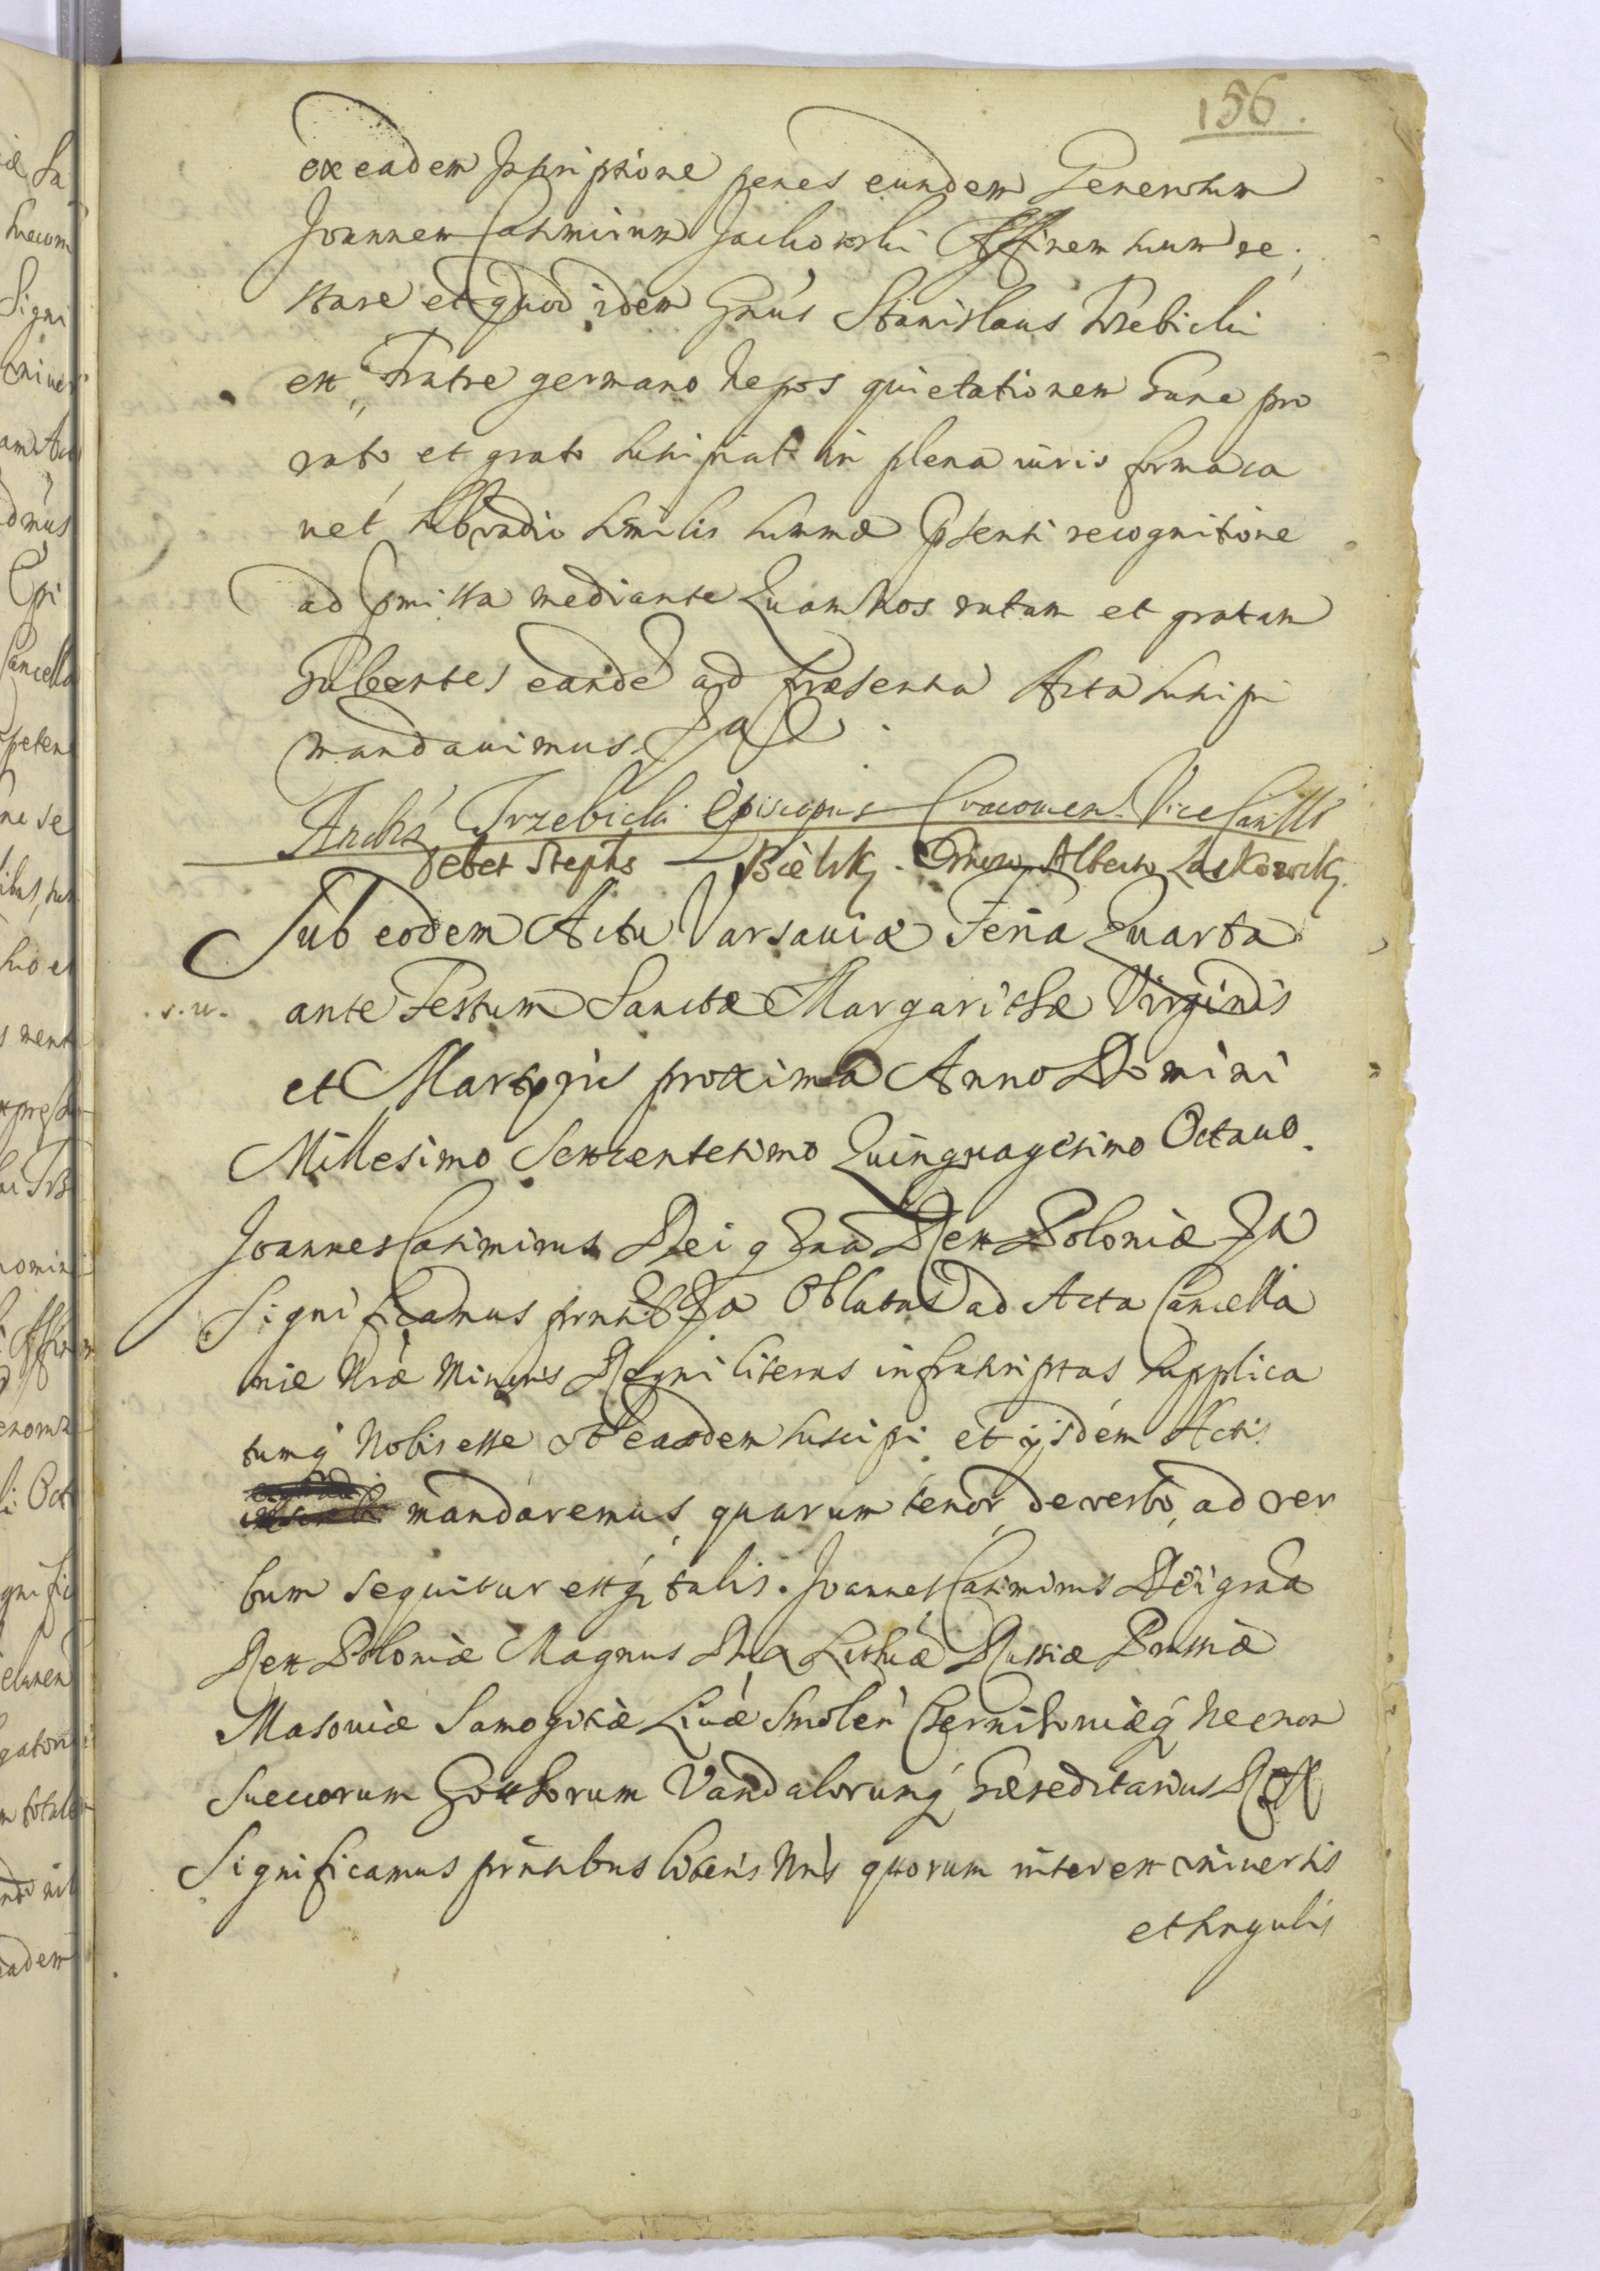 156.
ex eadem Jnscriptione penes eundem Generosum
Joannem Casimirum Jachowski Affinem suum re
stare et quod idem Gnus Stanislaus Trzebicki
ex Fratre germano Nepos quietationem hanc pro
rato et grato suscipiat in plena iuris forma ca
uet sub vadio similis summæ psenti recognitione
ad pmissa mediante Quam Nos ratam et gratam
habentes eandē ad præsentia Acta suscipi
mandauimus.
Andrs Trzebicki Episcopus Cracouien. Vice Canclls
debet Stephs Bielsky. Alberto Laskowsky.
Sub eodem Actu Varsauiæ Feria Quarta
ante Festum Sanctæ Margarithæ Virginis
s. w.
et Martyris proxima Anno Domini
Millesimo Sexcentesimo Quinquagesimo Octauo.
Joannes Casimirus Dei gratia Rex Poloniæ
Significamus Oblatas ad Acta Cancella
riæ Nræ Minoris Regni literas infrascriptas supplica
tumq Nobis esse vt easdem suscipi et ijsdem Actis
mandaremus, quarum tenor de verbo, ad ver
bum sequitur estq talis. Joannes Casimirus Dei gratia
Rex Poloniæ Magnus Dux Lithuæ Russiæ Prussiæ
Masouiæ Samogitiæ Liuæ Smolen Czernihouiæq Necnon
Sueccorum Gotthorum Vandalorumq hæreditarius Rex
Significamus pntibus literis Nris quorum interest vniuersis
et singulis